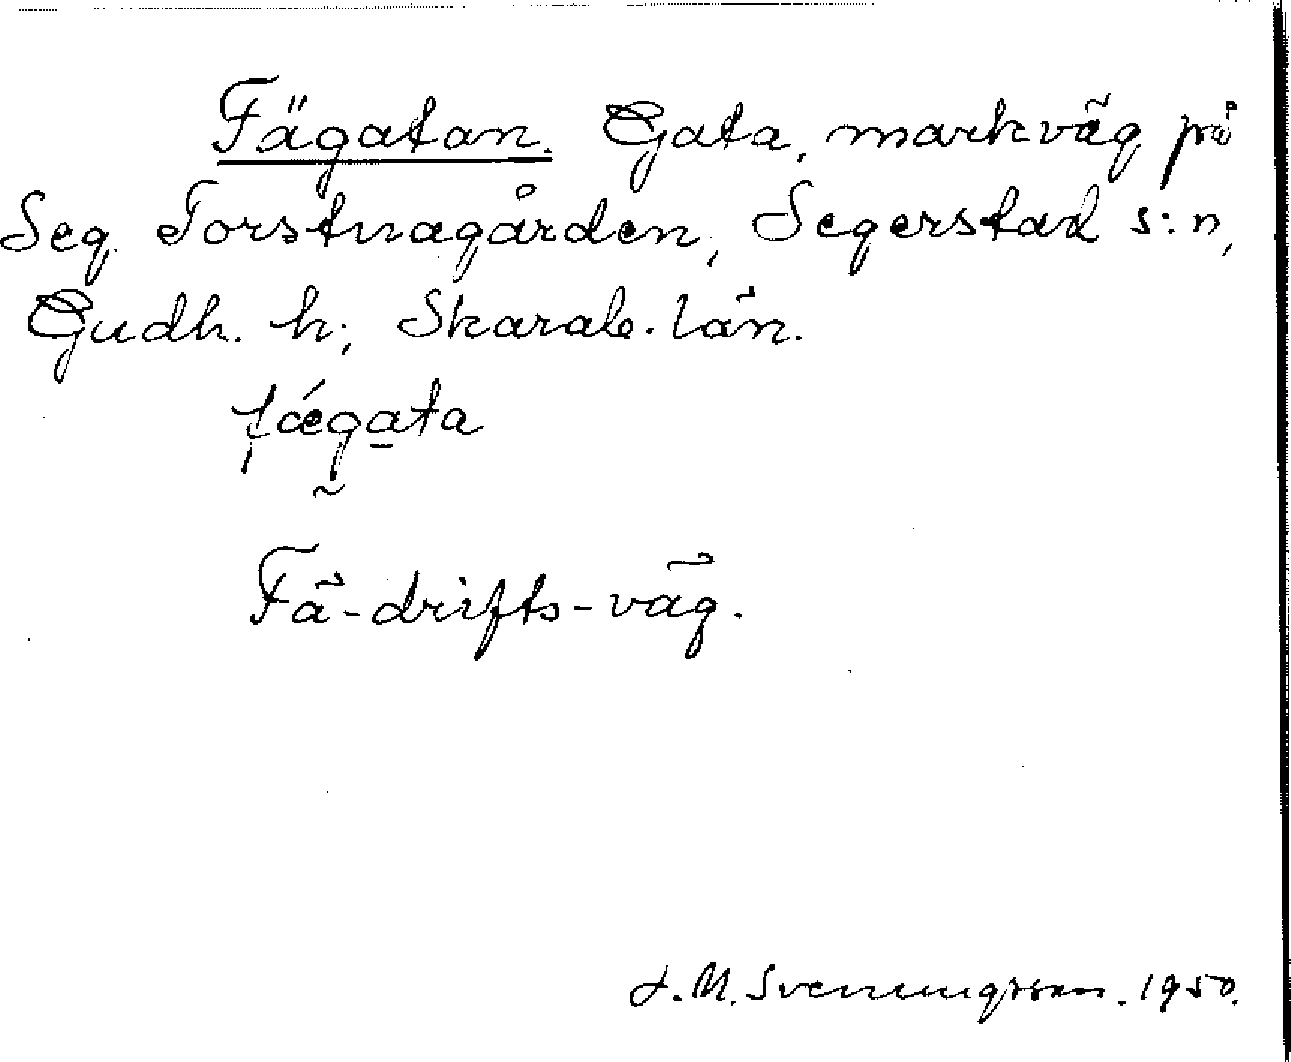 Fägatan. Gata, markväg på
Seg. Torstnagården, Segerstad s:n,
Gudh. h; Skarab. län.
fǽgata
~
Fä-drifts-väg.
J. M. Svenungsson. 1950.